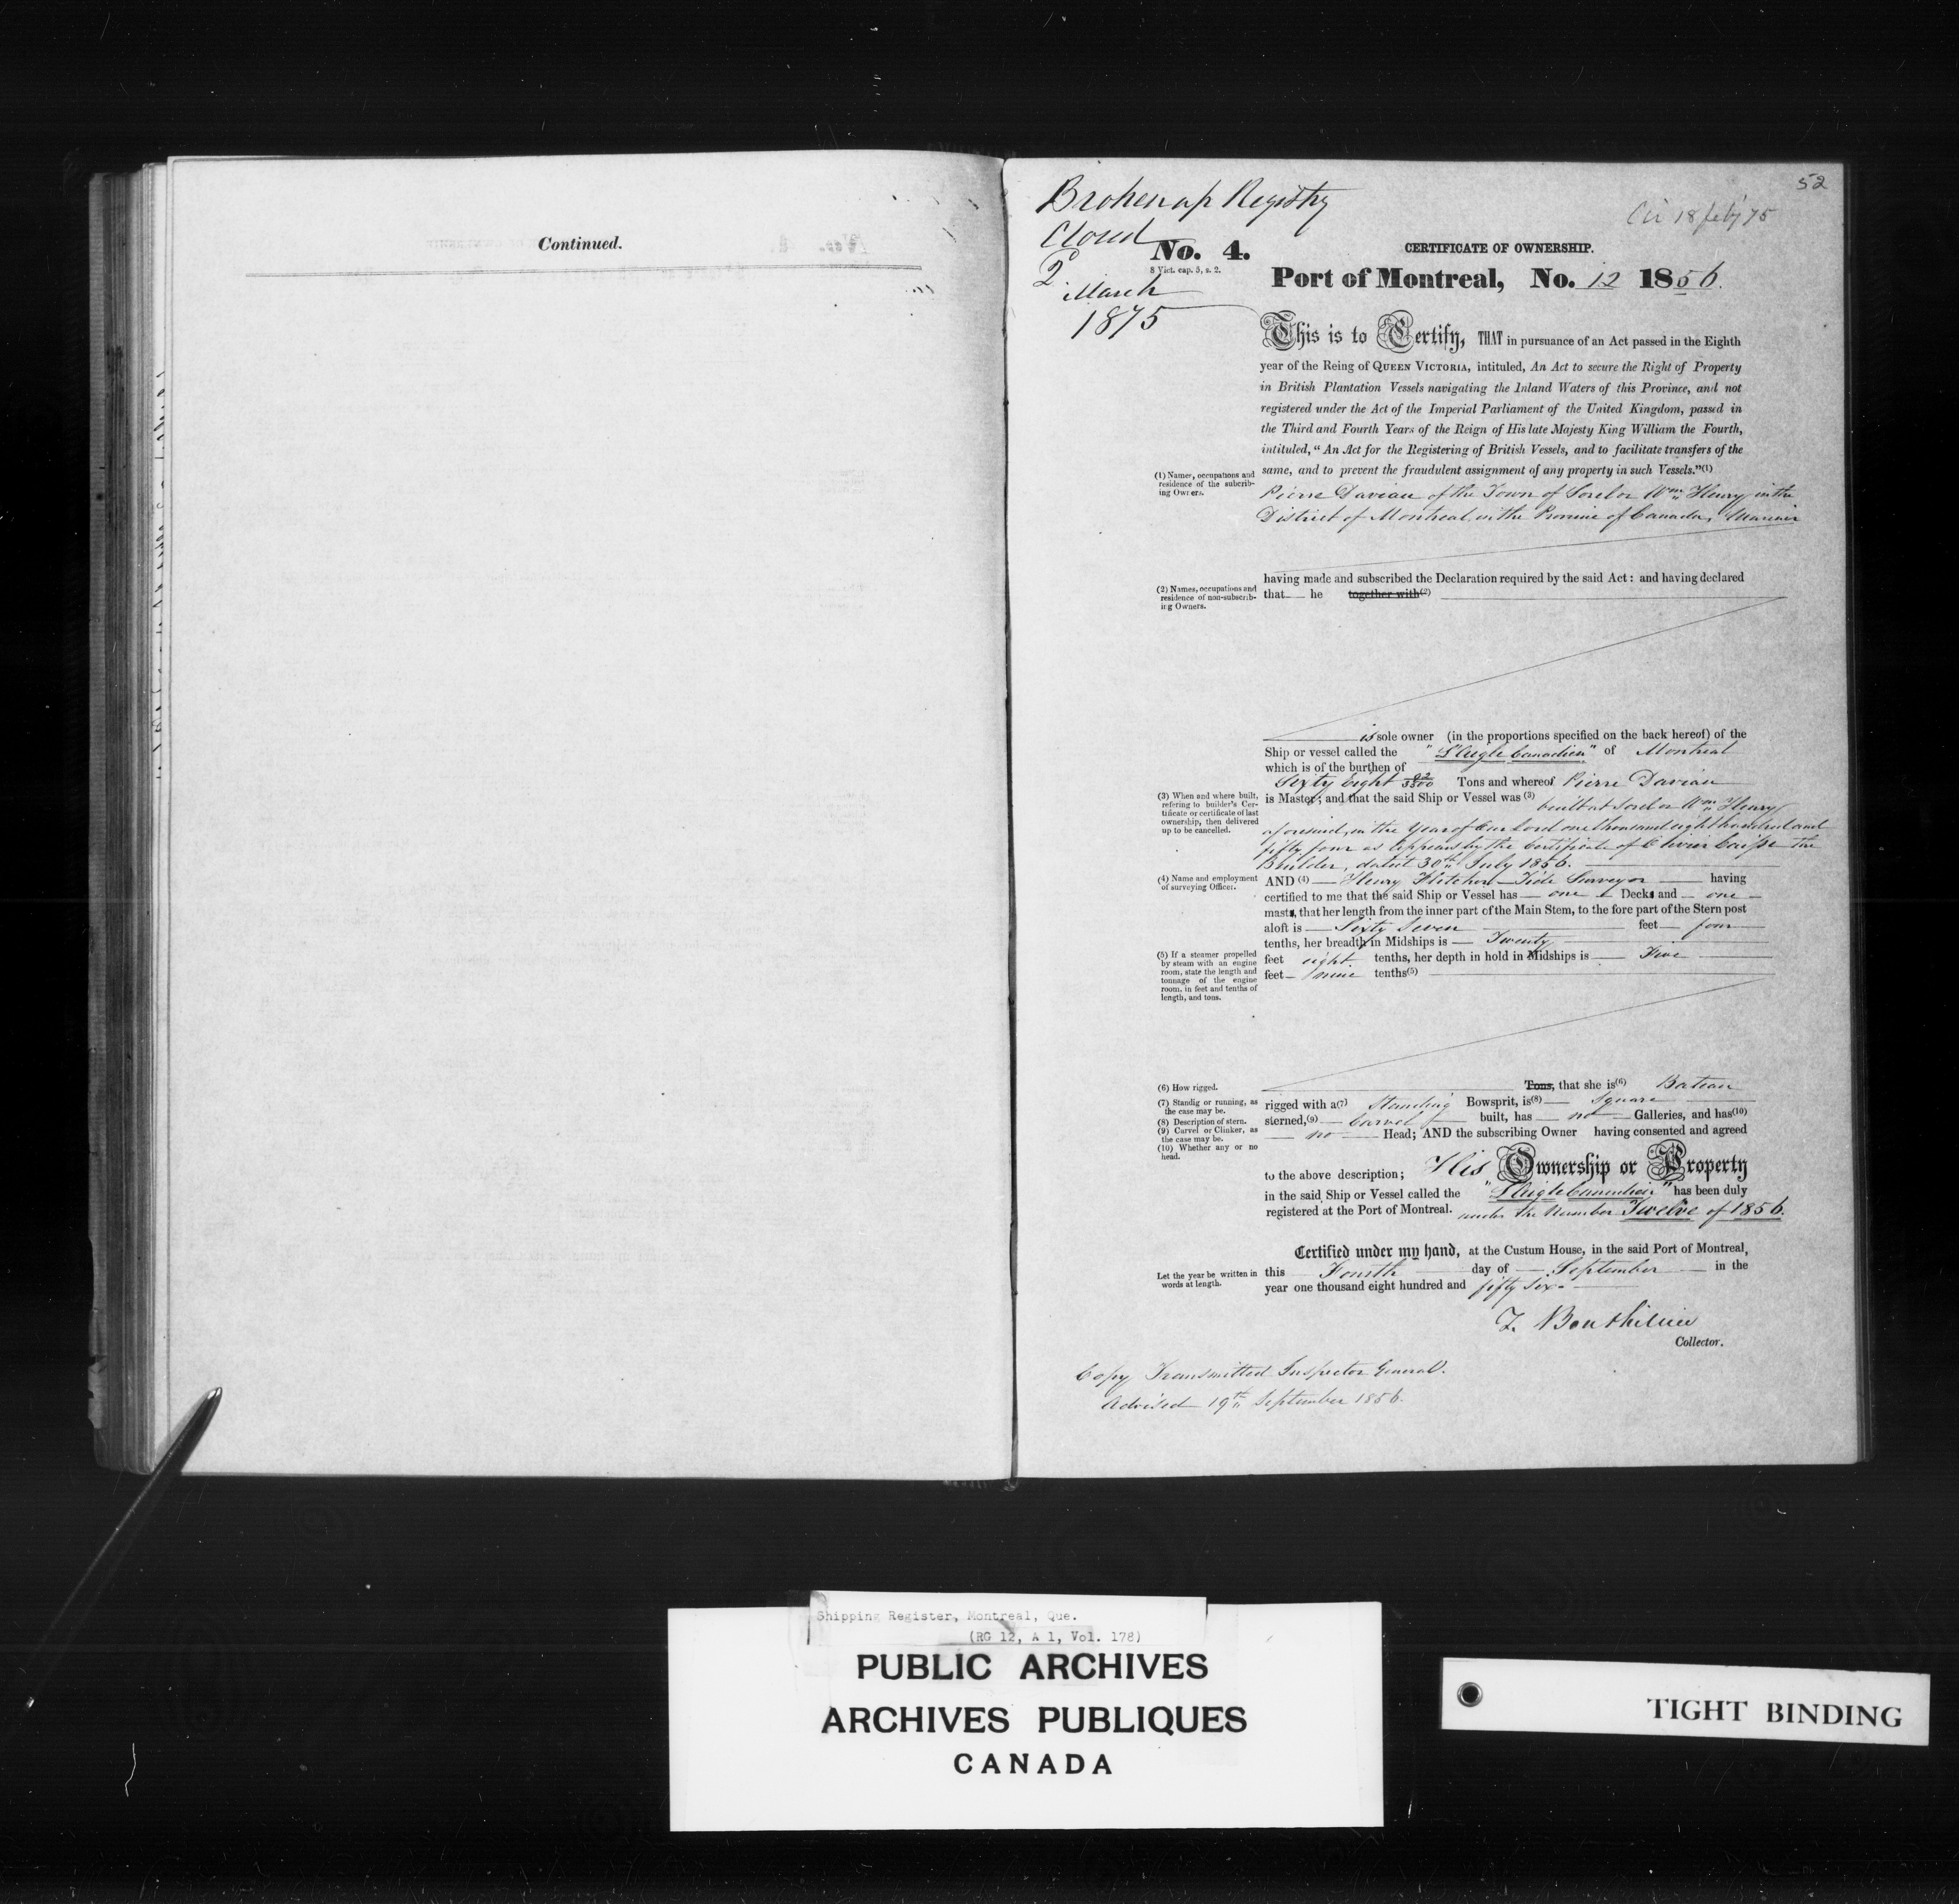 Continued.
52
Cir 18 feby 75
Broken up Registry
Closed
2
March
1875
No. 4.
8 Vict. cap. 5, s. 2.
CERTIFICATE OF OWNERSHIP.
Port of Montreal, No. 12 1856.
This is to Certify, THAT in pursuance of an Act passed in the Eighth
year of the Reing of QUEEN VICTORIA, intituled, An Act to secure the Right of Property
in British Plantation Vessels navigating the Inland Waters of this Province, and not
registered under the Act of the Imperial Parliament of the United Kingdom, passed in
the Third and Fourth Years of the Reign of His late Majesty King William the Fourth,
intituled, "An Act for the Registering of British Vessels, and to facilitate transfers of the
same, and to prevent the fraudulent assignment of any property in such Vessels."(1)
(1) Names, occupations and
residence of the subcrib-
ing Owners.
Pierre Daviau of the Town of Sorel or Wm Henry in the
District of Montreal in the Province of Canada, Mariner
having made and subscribed the Declaration required by the said Act: and having declared
(2) Names, occupations and
residence of non-subscrib-
ing Owners.
that he together with(2)
is sole owner (in the proportions specified on the back hereof) of the
Ship or vessel called the "L'Aigle Canadien" of Montreal
which is of the burthen of
Sixty Eight 92/3500 Tons and whereof Pierre Daviau
(3) When and where built,
refering to builder's Cer-
tificate or certificate of last
ownership, then delivered
up to be cancelled.
is Master; and that the said Ship or Vessel was (3) built at Sorel or Wm Henry
aforesaid, in the Year of Our Lord one thousand eight hundred and
fifty four as appears by the Certificate of Olivier Caisse the
Builder, dated 30th July 1856.
(4) Name and employment
of surveying Officer.
AND (4) Henry Hitchen Tide Surveyor having
certified to me that the said Ship or Vessel has one Decks and one
masts, that her length from the inner part of the Main Stem, to the fore part of the Stern post
aloft is Sixty Seven feet four
tenths, her breadth in Midships is Twenty
(5) If a steamer propelled
by steam with an engine
room, state the length and
tonnage of the engine
room, in feet and tenths of
length, and tons.
feet eight tenths, her depth in hold in Midships is Five
feet nine tenths(5)
(6) How rigged.
Tons, that she is(6) Bateau
(7) Standig or running, as
the case may be.
(8) Description of stern.
(9) Carvel or Clinker, as
the case may be.
(10) Whether any or no
head.
rigged with a(7) Standing Bowsprit, is(8) Square
sterned,(9) Carvel built, has no Galleries, and has(10)
no Head; AND the subscribing Owner having consented and agreed
to the above description; His Ownership or Property
in the said Ship or Vessel called the "L'Aigle Canadien" has been duly
registered at the Port of Montreal. under the Number Twelve of 1856.
Certified under my hand, at the Custum House, in the said Port of Montreal,
Let the year be written in
words at length.
this Fourth day of September in the
year one thousand eight hundred and fifty six.
T. Bouthillier
Collector.
Copy Transmitted Inspector General.
Advised 19th September 1856.
Shipping Register, Montreal, Que.
(RG 12, A 1, Vol. 178)
PUBLIC ARCHIVES
ARCHIVES PUBLIQUES
CANADA
TIGHT BINDING